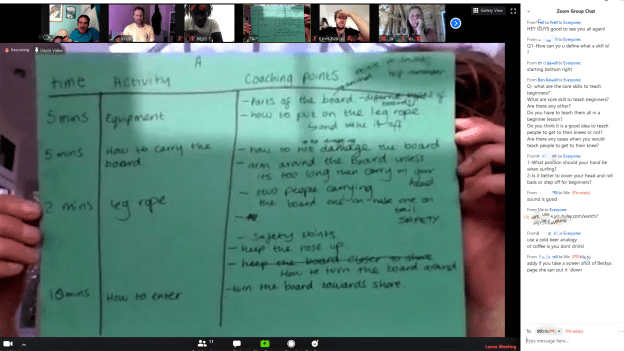 Gallery View
Recording
Unspin Video
A
Time Activity Coaching points
5 mins Equipment
- Parts of the board
- how to put on the leg rope
and take it off
5 mins How to carry the board.
- how to not damage the board
- arm around the board unless
its too long then carry on your
head
- two people carrying
the board one on nose one on
tail
2 mins leg rope.
SAFETY
- Safety points
- keep the nose up.
- keep the board closer to shore
How to turn the board around
10mins How to enter
- turn the board towards shore.
11
Leave Meeting
Zoom Group Chat
to Everyone
HEY GUYS good to see you all again!
to Everyone
Q1-How can you define a what skill is
?
to Everyone
starting bottom right
From Ben Kewell to Everyone
Q- what are the core skills to teach
beginners?
What are core skill to teach beginners?
Are there any other?
Do you have to teach them all in a
beginner lesson?
Do you think it is a good idea to teach
people to get to their knees or not?
Are there any cases when you would
teach people to get to their knee?
to Everyone
1-What position should your hand be
when surfing?
2-Is it better to cover your head and roll
back or step off for beginners?
From to Me (Privately)
sound is good
From Me to Everyone
From to Everyone
use a cold beer analogy
or coffee is you dont drink!
From to Me
addy if you take a screen shot of Beckys
page she can put it down
To: (Privately)
Type message here...